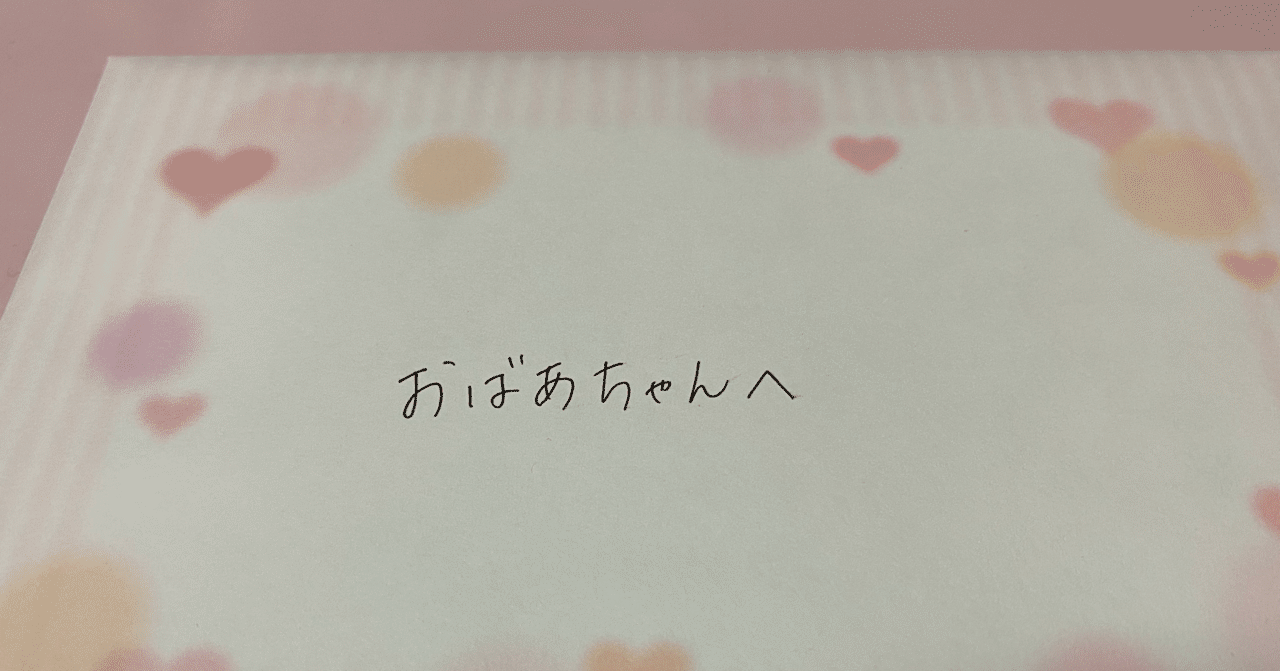 おばあちゃんへ